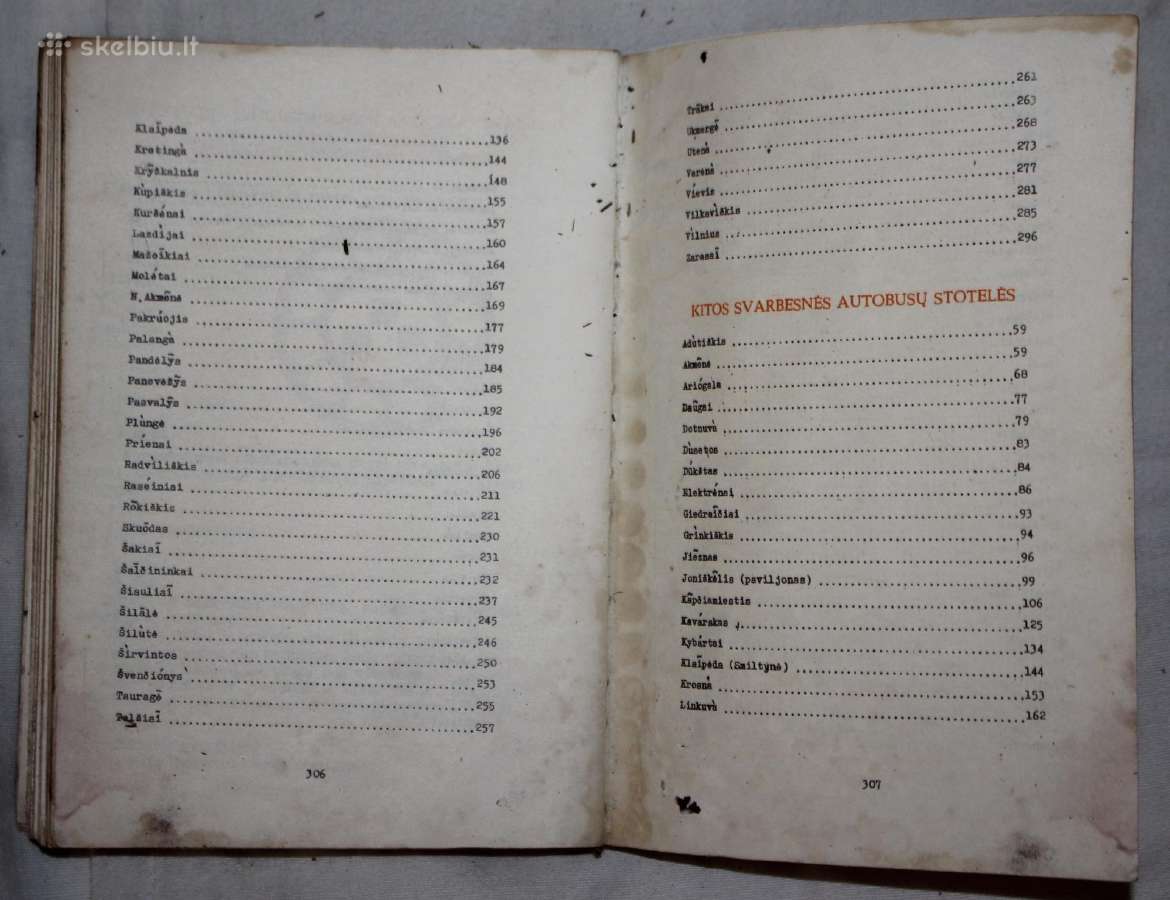 skelbiu.lt
Klaĩpėda 136
Kretingà 144
Krỹžkalnis 148
Kùpiškis 155
Kuršėnai 157
Lazdìjai 160
Mažeĩkiai 164
Molė́tai 167
N. Akmẽnė 169
Pakrúojis 177
Palangà 179
Pandėlỹs 184
Panevėžỹs 185
Pasvalỹs 192
Plùngė 196
Príenai 202
Radvìliškis 206
Raséiniai 211
Rõkiškis 221
Skuõdas 230
Šakiaĩ 231
Šalčininkai 232
Šiauliaĩ 237
Šilãlė 245
Šilùtė 246
Šìrvintos 250
Švenčiónys 253
Tauragẽ 255
Telšiaĩ 257
306
Trãkai 261
Ukmergė̃ 263
Utenà 268
Varėnà 273
Víevis 277
Vilkavìškis 281
Vìlnius 285
Zarasaĩ 296
KITOS SVARBESNĖS AUTOBUSŲ STOTELĖS
Adùtiškis 59
Akmẽnė 59
Ariógala 68
Daũgai 77
Dotnuvà 79
Dùsetos 83
Dū́kštas 84
Elektrė́nai 86
Giedraĩčiai 93
Grìnkiškis 94
Jiẽznas 96
Joniškė̃lis (paviljonas) 99
Kãpčiamiestis 106
Kavárskas 125
Kybártai 134
Klaĩpėda (Smiltỹnė) 144
Krosnà 153
Linkuvà 162
307